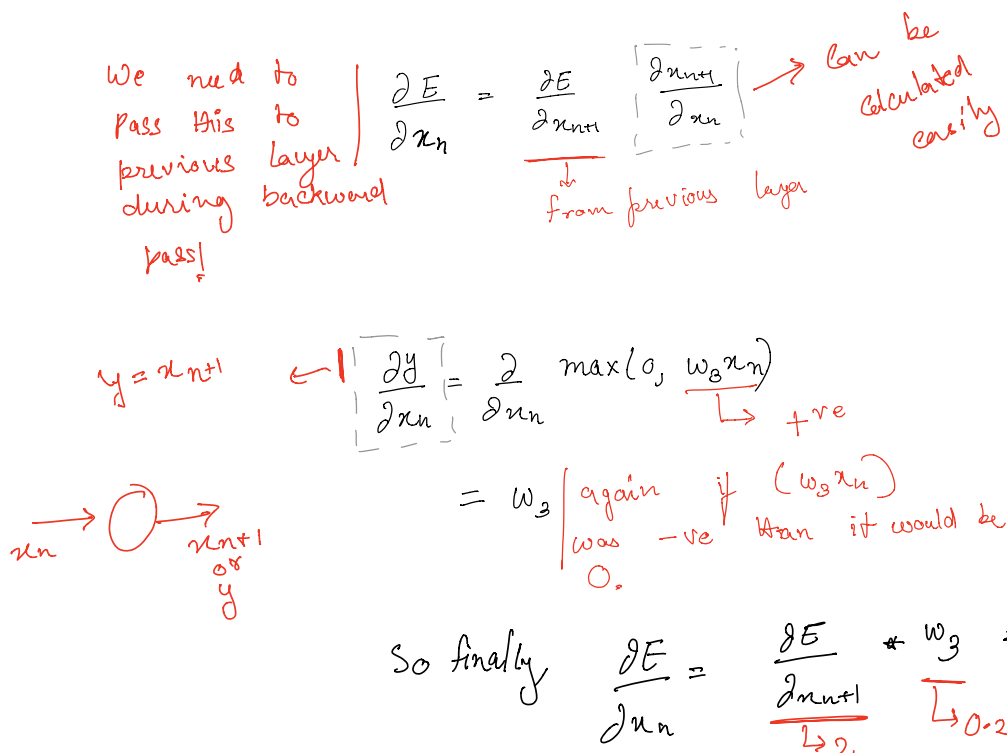 We need to
pass this to
previous layer
during backward
pass!
∂E/∂xn = ∂E/∂xn+1 ∂xn+1/∂xn
can be
calculated
easily
from previous layer
y = xn+1
∂y/∂xn = ∂/∂xn max(0, w3xn)
+ve
= w3
again if (w3xn)
was -ve than it would be
0.
xn
xn+1
or
y
So finally ∂E/∂xn = ∂E/∂xn+1 * w3